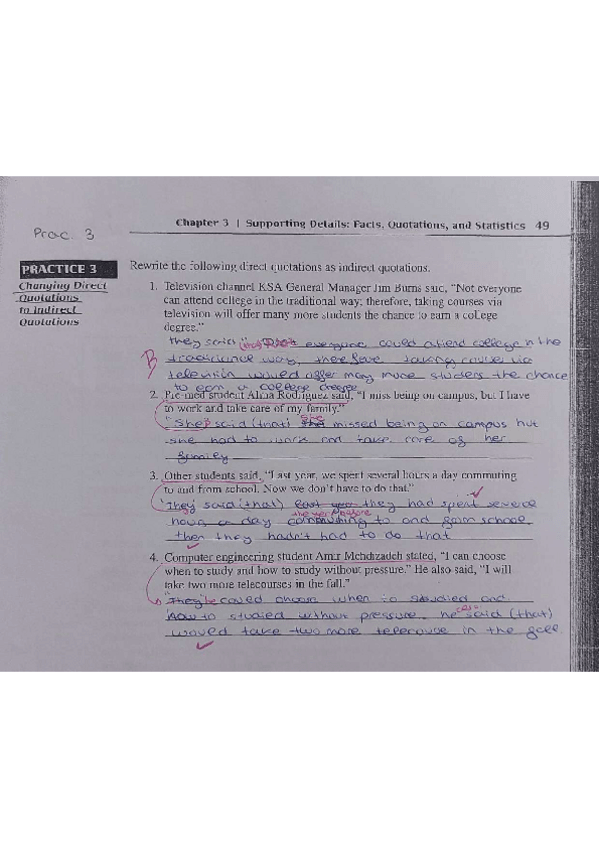 Chapter 3 | Supporting Details: Facts, Quotations, and Statistics 49
Prac. 3
PRACTICE 3
Changing Direct
Quotations
to Indirect
Quotations
Rewrite the following direct quotations as indirect quotations.
1. Television channel KSA General Manager Jim Burns said, "Not everyone
can attend college in the traditional way; therefore, taking courses via
television will offer many more students the chance to earn a college
degree."
They said everyone could attend college in the
way, therefore taking course via
would offer many more the chance
to earn a college degree
2. Pre-med student Alma Rodriguez said, "I miss being on campus, but I have
to work and take care of my family."
"She" said (that) she missed being on campus but
she had to work and take care of her
family
3. Other students said, "Last year, we spent several hours a day commuting
to and from school. Now we don't have to do that."
"They said (that) they had spent
the year before
hours a day to and from school
then they hadn't had to do that
4. Computer engineering student Amir Mehdizadeh stated, "I can choose
when to study and how to study without pressure." He also said, "I will
take two more telecourses in the fall."
"They he could choose when to studied and
how to studied without pressure. he said (that)
would take two more telecourse in the